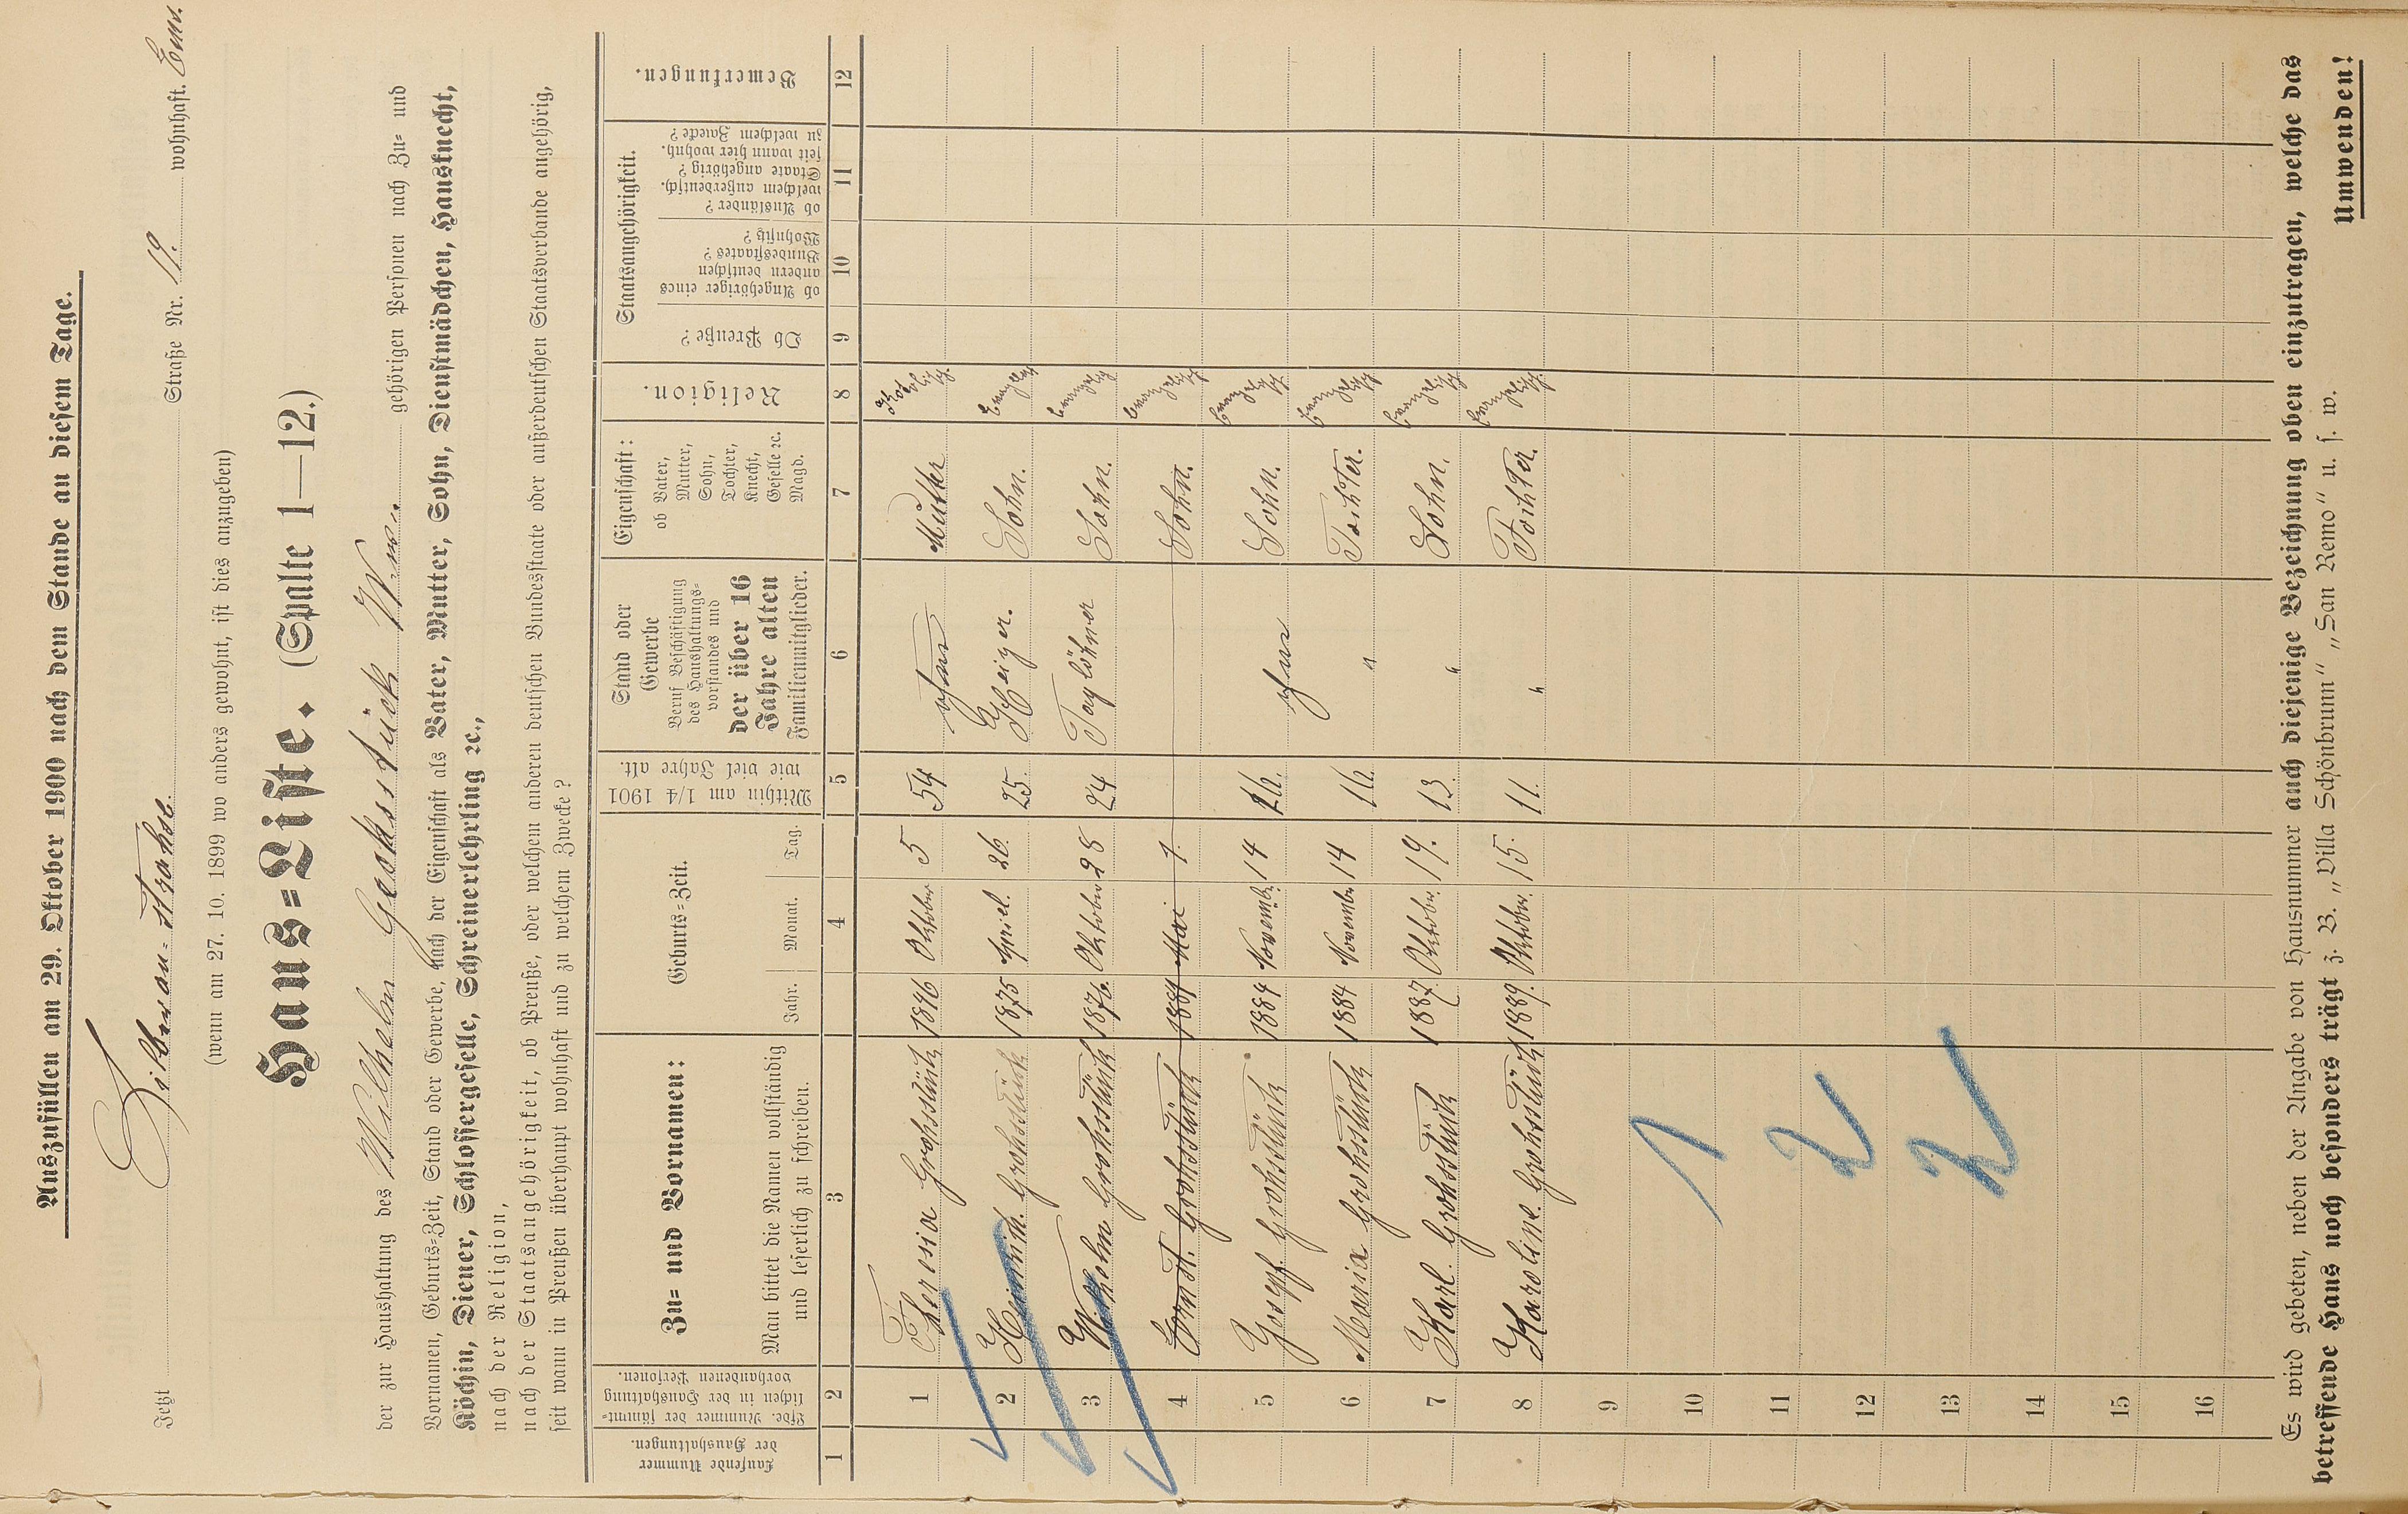 Auszufüllen am 29. Oktober 1900 nach dem Stande an diesem Tage.
Jetzt Silberau-Strahse. Straße Nr. 19. wohnhaft. Ems.
(wenn am 27. 10. 1899 wo anders gewohnt, ist dies anzugeben)
Haus=Liste. (Spalte 1—12.)
der zur Haushaltung des Wilhelm gehörigen Personen nach Zu= und
Vornamen, Geburts=Zeit, Stand oder Gewerbe, nach der Eigenschaft als Vater, Mutter, Sohn, Dienstmädchen, Hausknecht,
Köchin, Diener, Schlossergeselle, Schreinerlehrling ꝛc.,
nach der Religion,
nach der Staatsangehörigkeit, ob Preuße, oder welchem anderen deutschen Bundesstaate oder außerdeutschen Staatsverbande angehörig,
seit wann in Preußen überhaupt wohnhaft und zu welchem Zwecke?
Laufende Nummer der Haushaltungen.
Lfde. Nummer der sämmt=lichen in der Haushaltung vorhandenen Personen.
Zu= und Vornamen:
Man bittet die Namen vollständig und leserlich zu schreiben.
Geburts=Zeit.
Jahr. Monat. Tag.
Mithin am 1/4 1901 wie viel Jahre alt.
Stand oder Gewerbe
Beruf Beschäftigung des Haushaltungs=vorstandes und
der über 16 Jahre alten
Familienmitglieder.
Eigenschaft:
ob Vater, Mutter, Sohn, Tochter, Knecht, Geselle ꝛc. Magd.
Religion.
Staatsangehörigkeit.
Ob Preuße?
ob Angehöriger eines andern deutschen Bundesstaates? Wohnsitz?
ob Ausländer? welchem außerdeutsch. Staate angehörig? seit wann hier wohnh. zu welchem Zwecke?
Bemerkungen.
1 2 3 4 5 6 7 8 9 10 11 12
1 Theresia Grohsstück 1846 Oktober 5 54 ohne Mutter
2 Heinrich. Grohsstück 1875 April. 26. 25. Heizer. Sohn.
3 Wilhelm Grohsstück 1876. Oktober 28 24 Taglöhner Sohn.
4 Ernst. Grohsstück Mai 1. Sohn.
5 Josepf. Grohsstück 1884 November. 14 16. ohne Sohn.
6 Maria Grohsstück 1884 November 14 16. " Tochter.
7 Karl. Grohsstück 1887 Oktober. 19. 13. " Sohn.
8 Karoline. Grohsstück 1889. Oktober. 15. 11. " Tochter.
9
10 1
11 2
12
13 2
14
15
16
Es wird gebeten, neben der Angabe von Hausnummer auch diejenige Bezeichnung oben einzutragen, welche das
betreffende Haus noch besonders trägt z. B. „Villa Schönbrunn" „San Remo" u. s. w.
Umwenden!